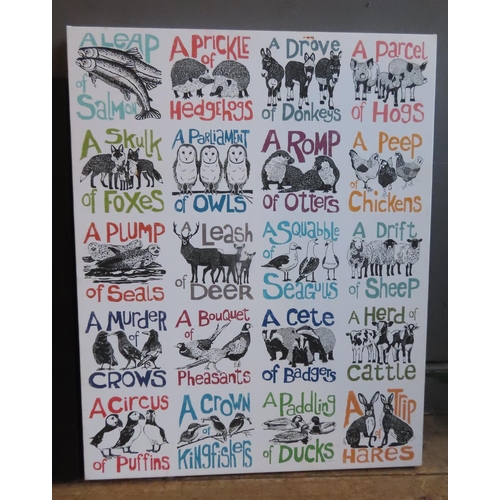 A LEAP
of
SALMON
A PRICKLE
of
HEDGEHOGS
A DROVE
of DONKEYS
A PARCEL
of HOGS
A SKULK
of FOXES
A PARLIAMENT
of OWLS
A ROMP
of OTTERS
A PEEP
of
CHICKENS
A PLUMP
of SEALS
A LEASH
of
DEER
A SQUABBLE
of
SEAGULLS
A DRIFT
of SHEEP
A MURDER
of
CROWS
A BOUQUET
of
PHEASANTS
A CETE
of BADGERS
A HERD of
CATTLE
A CIRCUS
of PUFFINS
A CROWN
of
KINGFISHERS
A PADDLING
of DUCKS
A TRIP
of
HARES